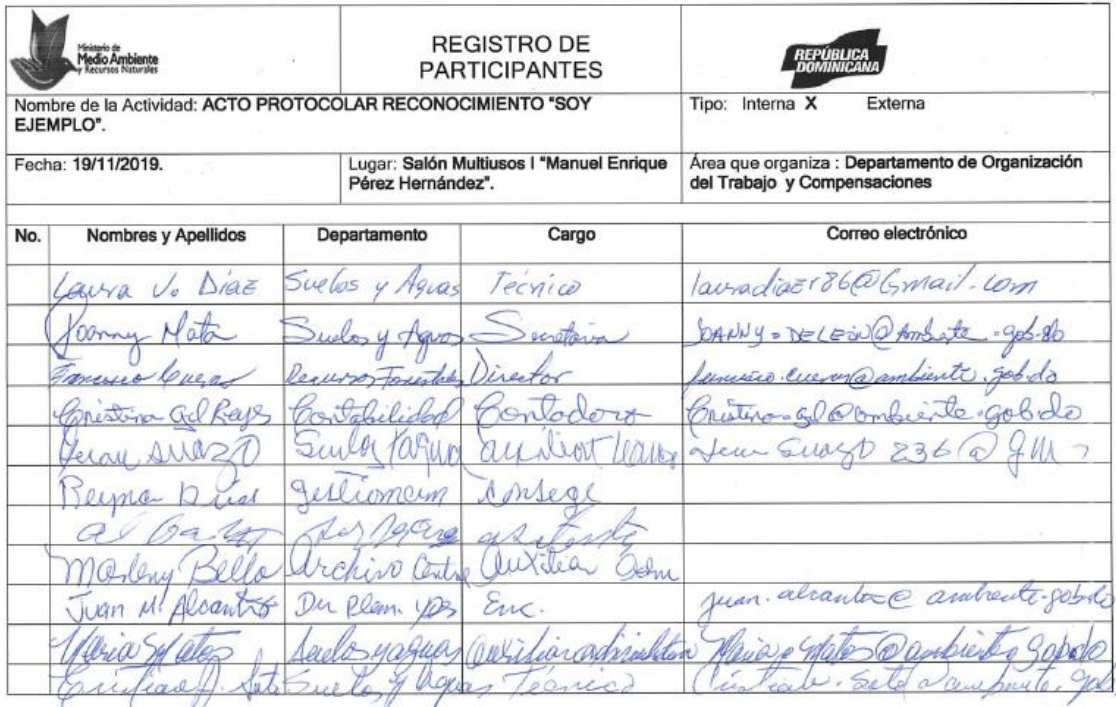 Ministerio de
Medio Ambiente
y Recursos Naturales
REGISTRO DE
PARTICIPANTES
REPÚBLICA
DOMINICANA
Nombre de la Actividad: ACTO PROTOCOLAR RECONOCIMIENTO "SOY
EJEMPLO".
Tipo: Interna X Externa
Fecha: 19/11/2019.
Lugar: Salón Multiusos I "Manuel Enrique
Pérez Hernández".
Área que organiza : Departamento de Organización
del Trabajo y Compensaciones
No. Nombres y Apellidos Departamento Cargo Correo electrónico
Laura V. Díaz Suelos y Aguas Técnico lauradiazr86@Gmail.com
Joanny Mata Suelos y Aguas Secretaria JOANNY.DELEON@Ambiente.gob.do
Francisco Cuevas Recursos Forestales Director francisco.cuevas@ambiente.gob.do
Cristina Gil Reyes Contabilidad Contadora Cristina.gil@ambiente.gob.do
Suazo Suelos Suazo 236@
Reyna
Marleny Bello Archivo Auxiliar
Juan M. Alcantara Enc. juan.alcantara@ambiente.gob.do
Maria Matos Suelos y aguas Maria.Matos@ambiente.gob.do
Soto Suelos y Aguas Técnico